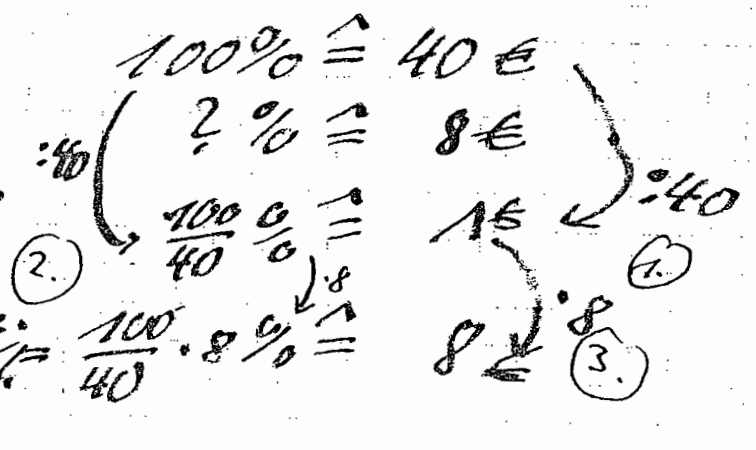 100% ≙ 40 €
? % ≙ 8 €
:40
:40
100/40 % ≙ 1 €
2.
1.
·8
·8
= 100/40 · 8 % ≙ 8 €
3.